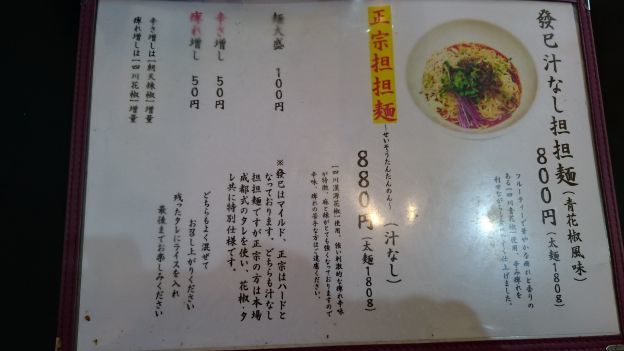 發巳汁なし担担麺(青花椒風味)
800円(太麺180g)
フルーティーで華やかな痺れと香りの
ある【四川青花椒】使用、辛み痺れを
仕上げました。
正宗担担麺(汁なし)
~せいそうたんたんめん~
880円(太麺180g)
【四川漢源花椒】使用、強い刺激的な痺れ辛味
が特徴、麻と辣がとても強くなっておりますので
辛味、痺れの苦手な方はご遠慮ください。
※發巳はマイルド、正宗はハードと
なっております。どちらも汁なし
担担麺ですが正宗の方は本場
成都式のタレを使い、花椒・タ
レ共に特別仕様です。
どちらもよく混ぜて
お召し上がりください
残ったタレにライスを入れ
最後までお楽しみください
麺大盛 100円
辛さ増し 50円
痺れ増し 50円
辛さ増しは【朝天辣椒】増量
痺れ増しは【四川花椒】増量